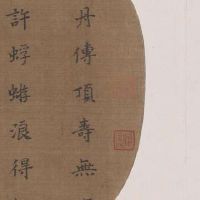 丹傳頂壽無
許蜉蝣浪得